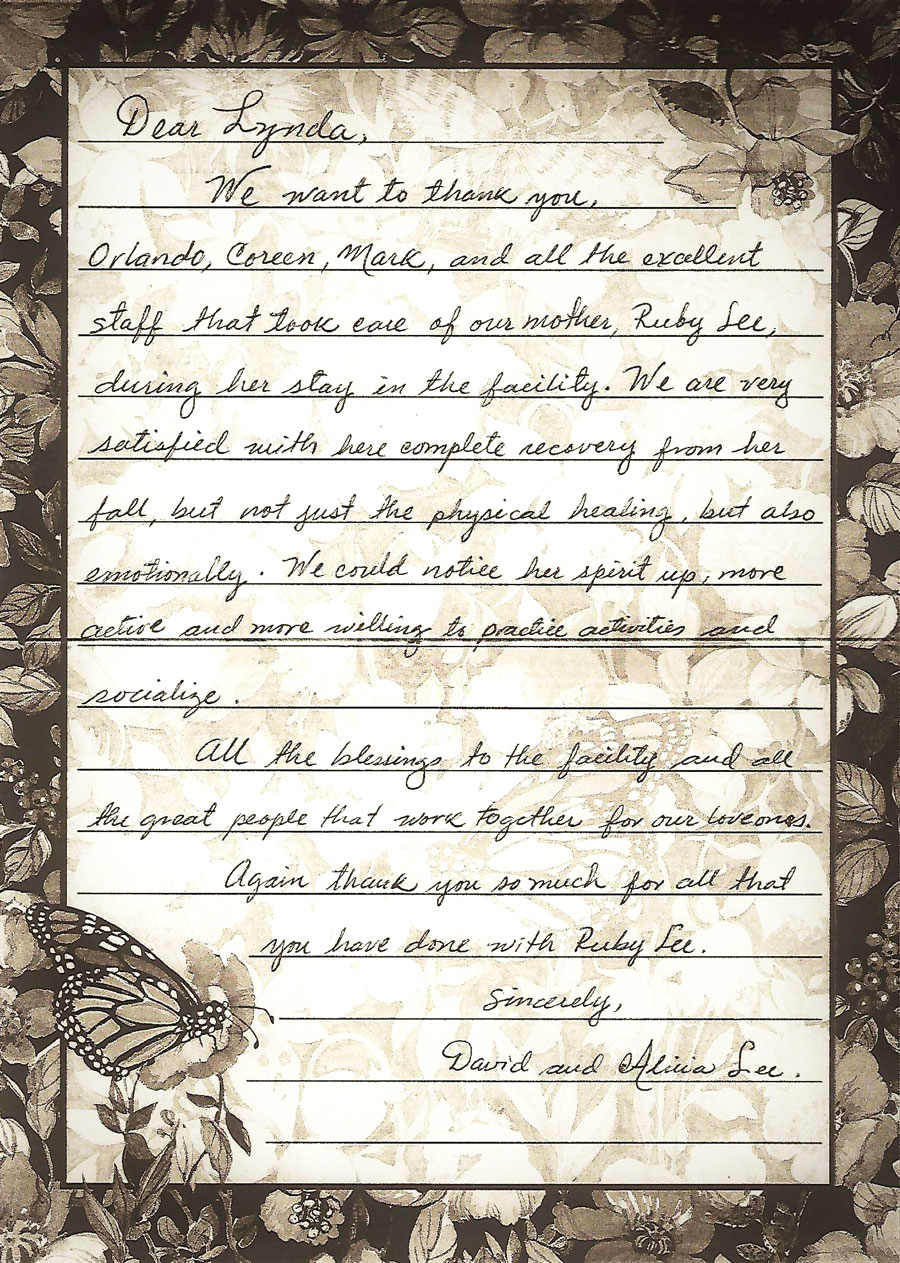 Dear Lynda,
We want to thank you,
Orlando, Coreen, Mark, and all the excellent
staff that took care of our mother, Ruby Lee,
during her stay in the facility. We are very
satisfied with here complete recovery from her
fall, but not just the physical healing, but also
emotionally. We could notice her spirit up, more
active and more willing to practice activities and
socialize.
All the blessings to the facility and all
the great people that work together for our loveones.
Again thank you so much for all that
you have done with Ruby Lee.
Sincerely,
David and Alicia Lee.